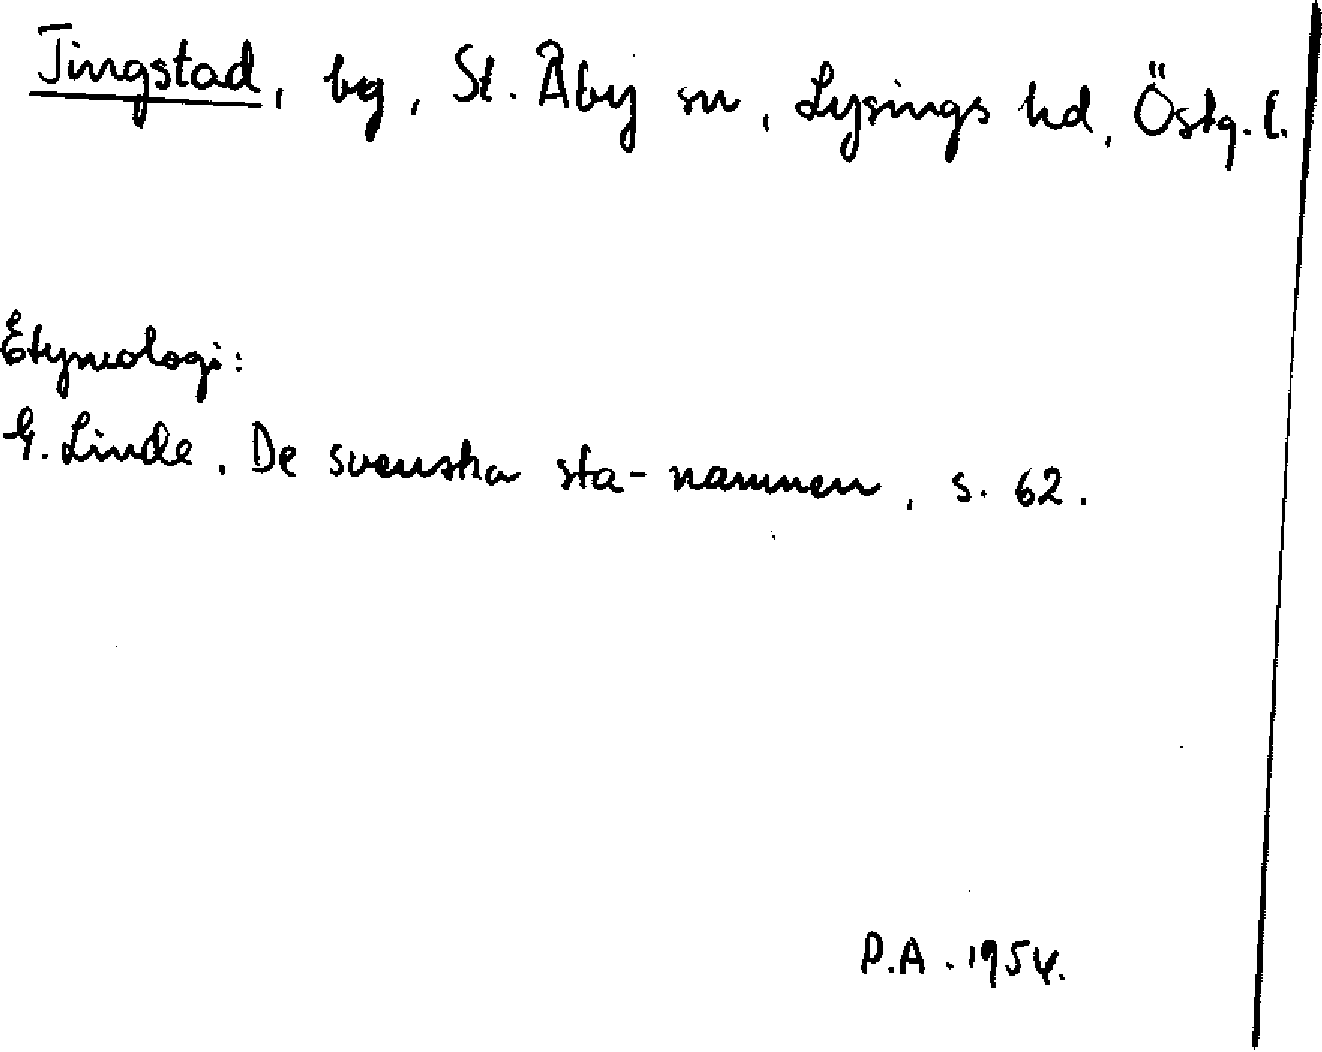 Tingstad, by, St. Åby sn, Lysings hd, Östg. l.
Etymologi:
G. Linde, De svenska sta-namnen, s. 62.
P.A. 1954.